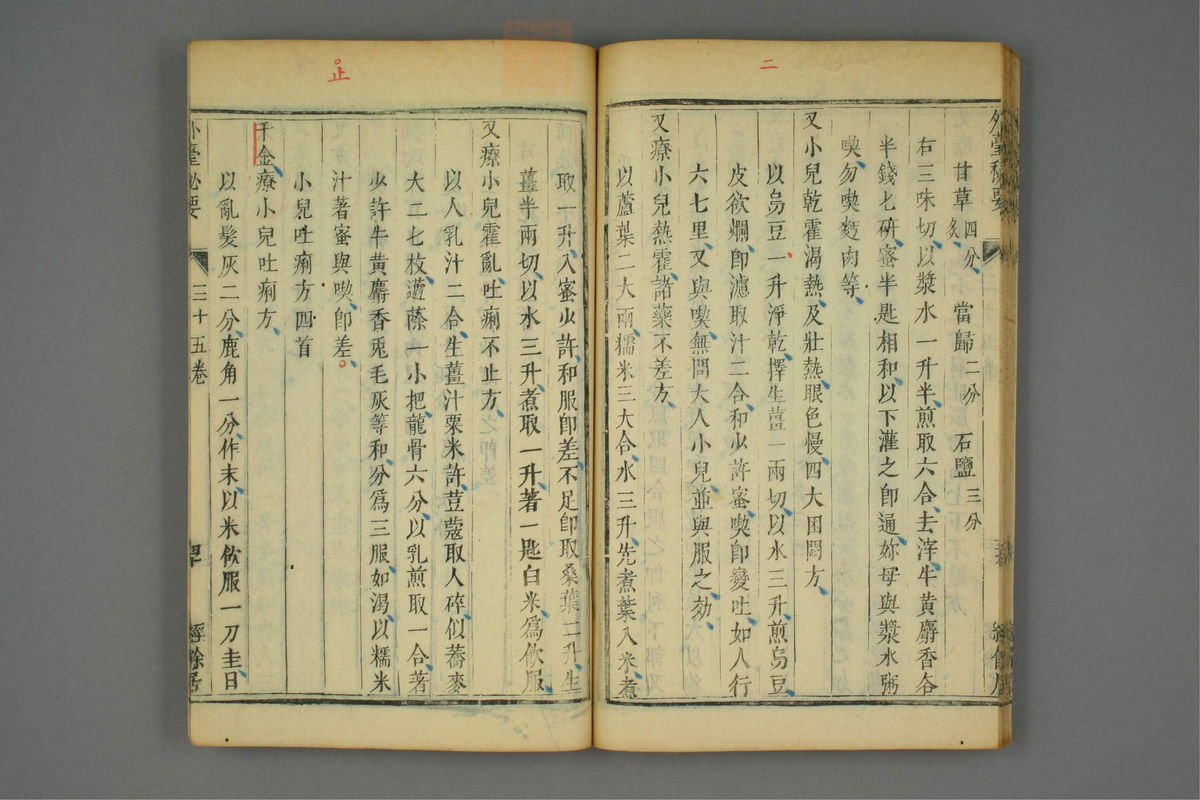 二
外臺秘要
甘草四分炙 當歸二分 石鹽三分
右三味切以漿水一升半煎取六合去滓牛黃麝香各
半錢匕硏蜜半匙相和以下灌之卽通妳母與漿水粥
喫勿喫麪肉等
又小兒乾霍渴熱及壯熱眼色慢四大困悶方
以烏豆一升淨乾擇生薑一兩切以水三升煎烏豆
皮欲爛卽濾取汁二合和少許蜜喫卽變吐如人行
六七里又與喫無問大人小兒並與服之効
又療小兒熱霍諸藥不差方
以蘆葉二大兩糯米三大合水三升先煮葉入米煮
止
取一升入蜜少許和服卽差不足卽取桑葉二升生
薑半兩切以水三升煮取一升著一匙白米爲飮服
又療小兒霍亂吐痢不止方
以人乳汁二合生薑汁粟米許荳蔻取人碎似蕎麥
大二七枚薖藤一小把龍骨六分以乳煎取一合著
少許牛黃麝香兎毛灰等和分爲三服如渴以糯米
汁著蜜與喫卽差
小兒吐痢方四首
千金療小兒吐痢方
以亂髮灰二分鹿角一分作末以米飮服一刀圭日
外臺秘要 三十五卷 經餘居